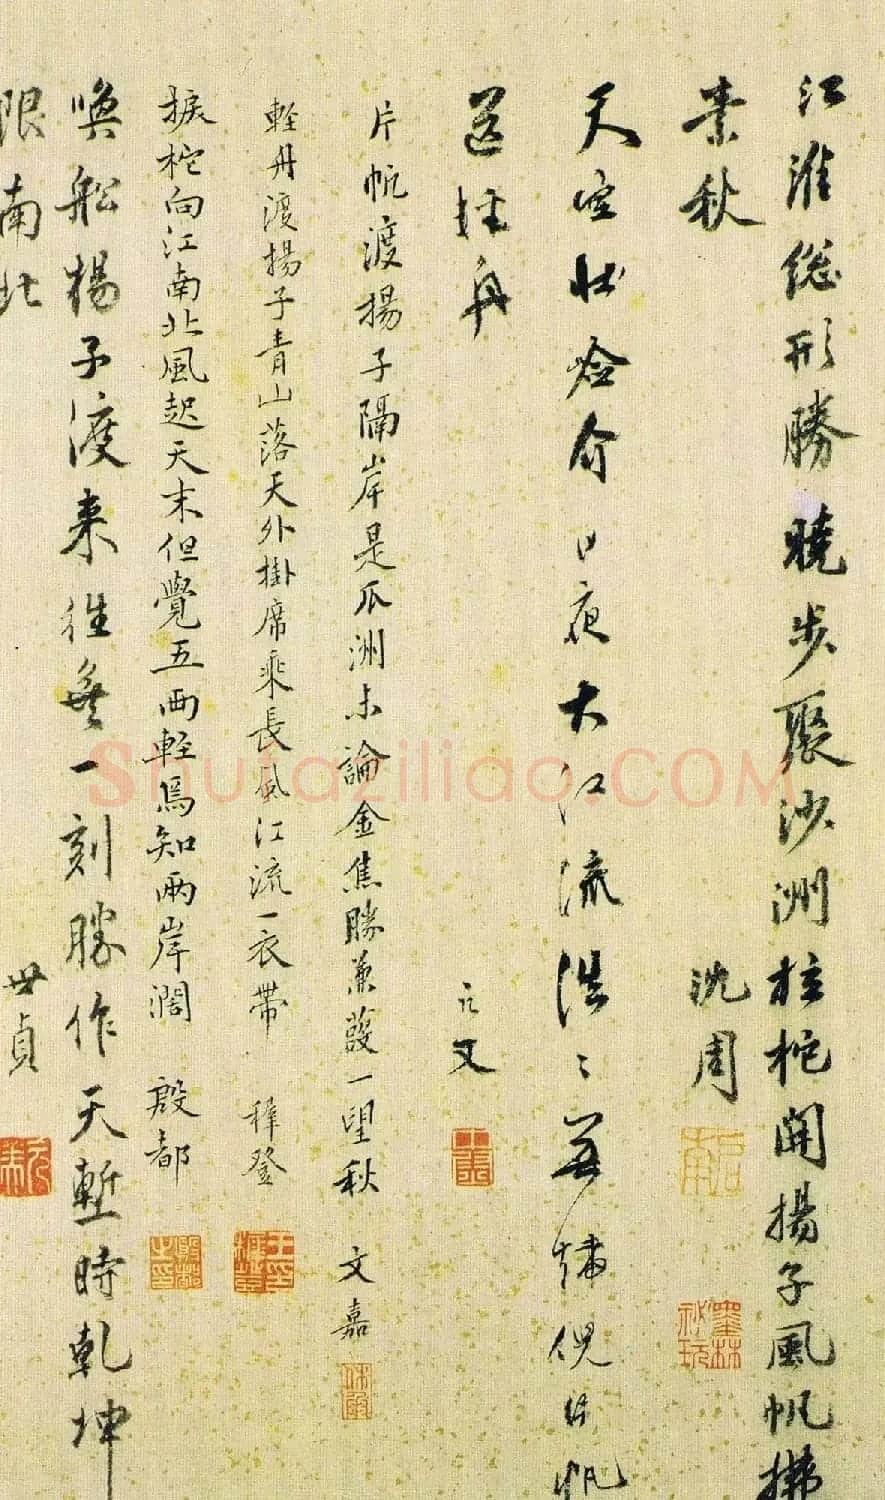 江淮總形勝曉步聚沙洲柱柁開揚子風帆拂
素秋 沈周
墨林祕玩
天空狀 日夜大江流浩〻無 倪片帆
送 舟
片帆渡揚子隔岸是瓜洲未論金焦勝蒹葭一望秋 文嘉
休承
輕舟渡揚子青山落天外掛席乘長風江流一衣帶 穉登
捩柁向江南北風起天末但覺五兩輕焉知兩岸濶 殷都
喚船楊子渡来往無一刻勝作天塹時乾坤
限南北 世貞
Shufaziliao.COM